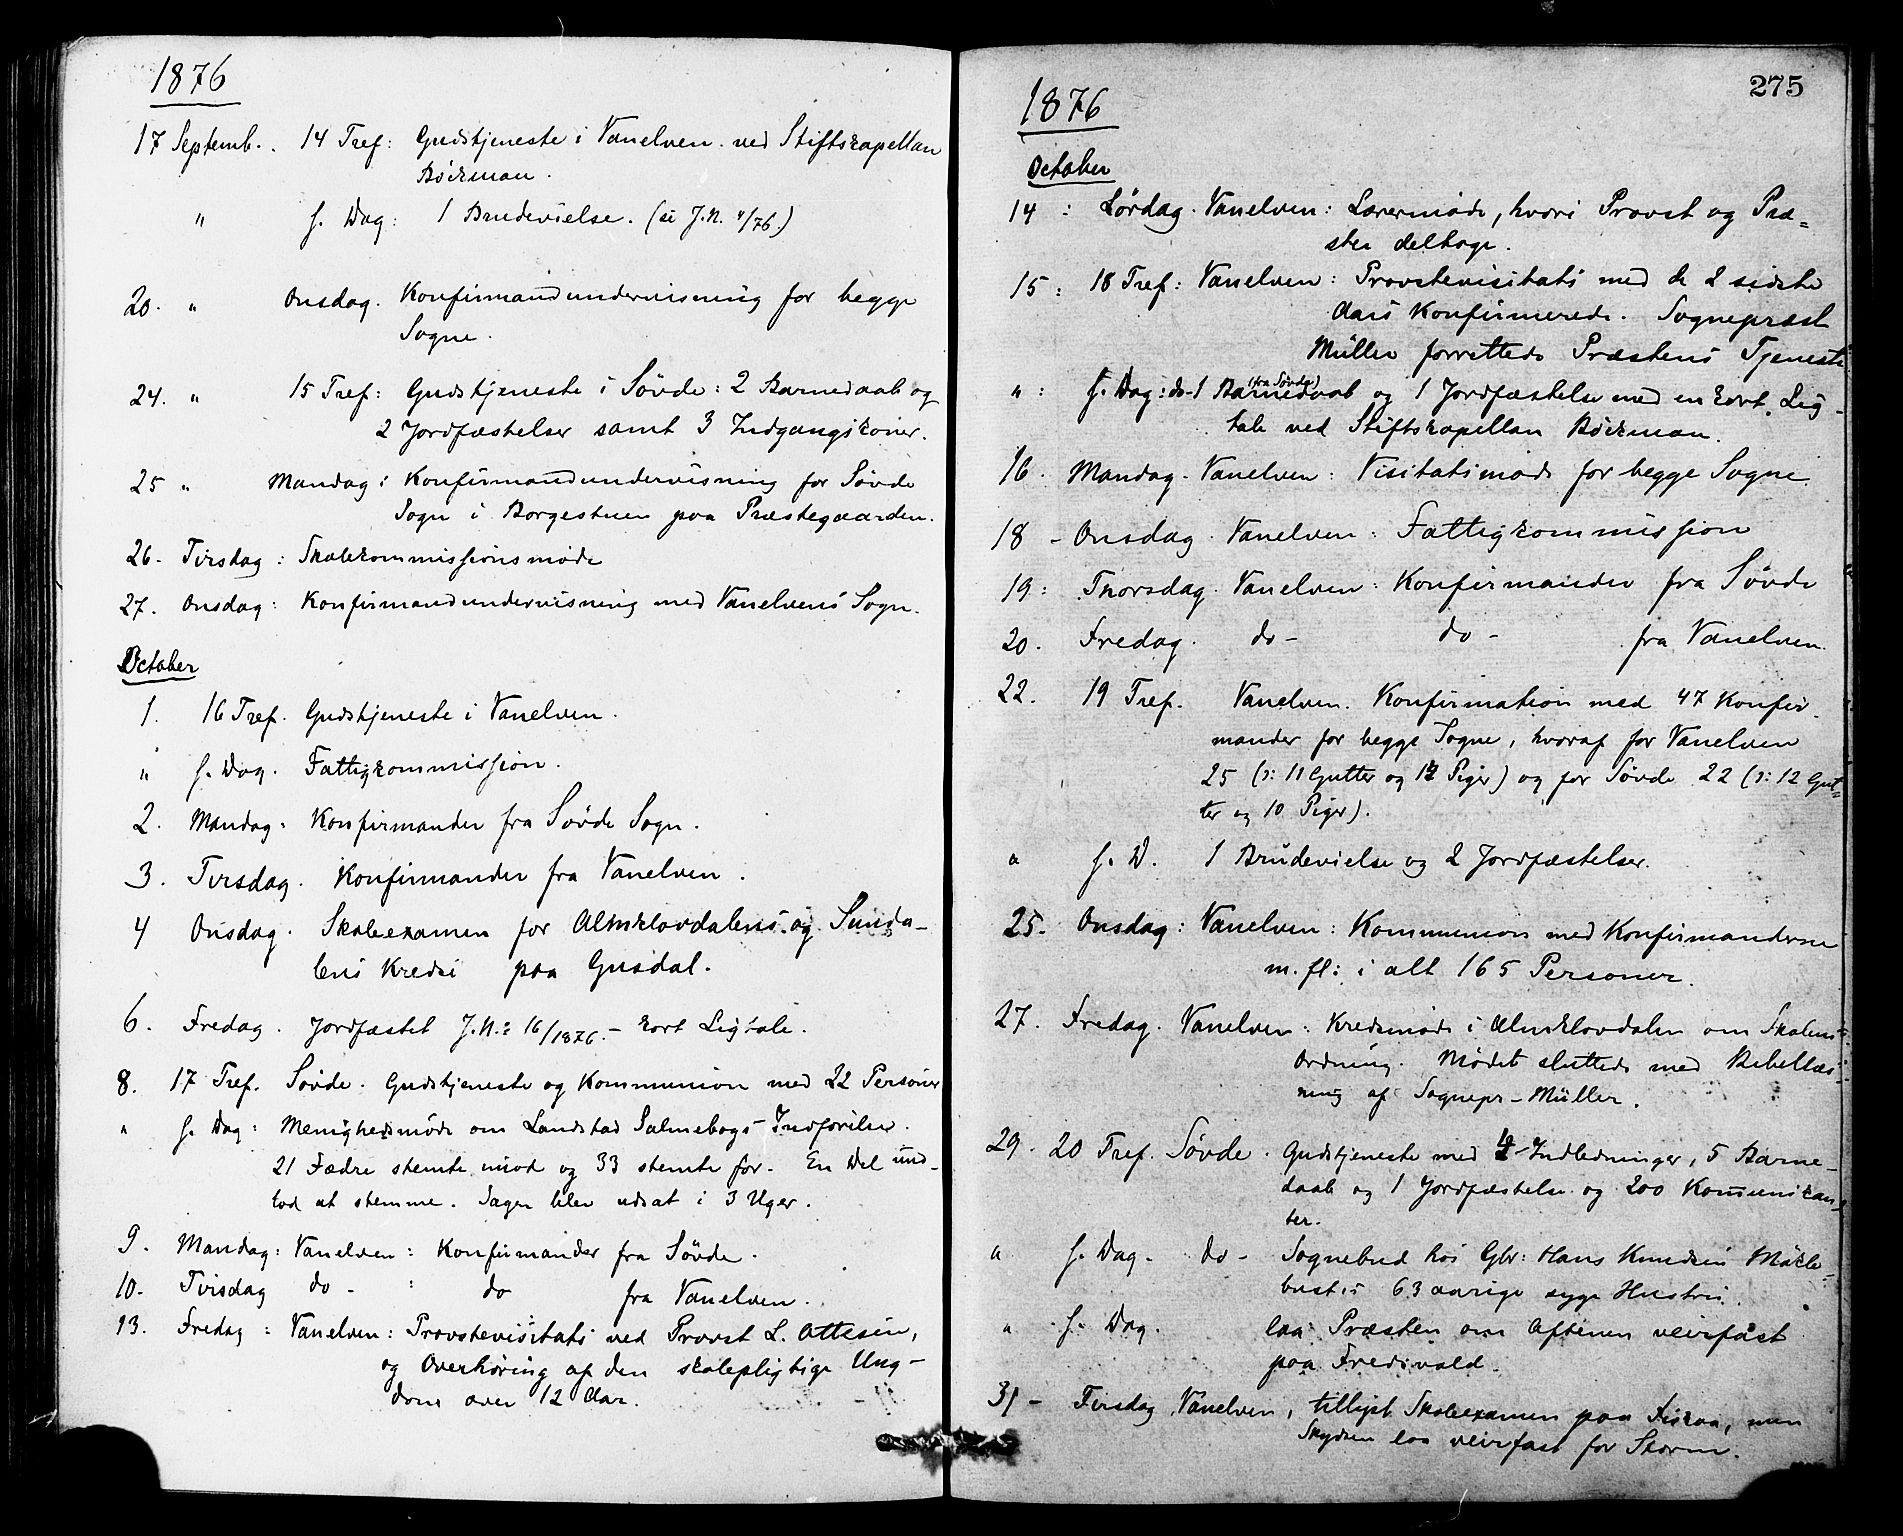 1876
17 Septemb. . 14 Tref: Gudstjeneste i Vanelven. ved Stiftskapellan
Böckman.
" f. Dag: 1 Brudevielse. (se J.N. 4/76.)
20. " Onsdag. Konfirmandundervisning for begge
Sogne.
24. " 15 Tref: Gudstjeneste i Sövde: 2 Barnedaab og
2 Jordfæstelser samt 3 Indgangskoner.
25 " Mandag: Konfirmandundervisning for Sövde
Sogn i Borgestuen paa Præstegaarden.
26. Tirsdag: Skolekommissionsmöde
27. Onsdag: Konfirmandundervisning med Vanelvens Sogn.
October
1. 16 Tref. Gudstjeneste i Vanelven.
" f. Dag. Fattigkommission.
2. Mandag: Konfirmander fra Sövde Sogn.
3. Tirsdag. Konfirmander fra Vanelven.
4 Onsdag. Skoleexamen for Almklovdalens og Sunda-
lens Kredse paa Gusdal.
6. Fredag. Jordfæstet J.N.: 16/1876. – kort Ligtale.
8. 17 Tref. Sövde. Gudstjeneste og Kommunion med 22 Personer
" f. Dag: Menighedsmöde om Landstad Salmebogs Indförelse.
21 Fædre stemte imod og 33 stemte for. En Del und-
lod at stemme. Sagen blev udsat i 3 Uger.
9. Mandag: Vanelven: Konfirmander fra Sövde.
10. Tirsdag do - : do fra Vanelven.
13. Fredag: Vanelven: Provstevisitats ved Provst L. Ottesen,
og Overhöring af den skolepligtige Ung-
dom over 12 Aar.
275
1876
October
14: Lördag. Vanelven: Lærermöde, hvori Provst og Præ=
ster deltoge.
15: 18 Tref: Vanelven: Provstevisitats med de 2 sidste
Aars Konfirmerede. Sognepræst
Müller forrettede Præstens Tjeneste
" : f. Dag: do - 1 Barnedaab (fra Sövde) og 1 Jordfæstelse med en kort Lig-
tale ved Stiftskapellan Böckman.
16. Mandag. Vanelven: Visitatsmöde for begge Sogne
18 - Onsdag. Vanelven: Fattigkommission
19: Thorsdag. Vanelven: Konfirmander fra Sövde
20. Fredag. do - do - fra Vanelven.
22. 19 Tref. Vanelven. Konfirmation med 47 Konfir-
mander for begge Sogne, hvoraf for Vanelven
25 (ɔ: 11 Gutter og 14 Piger) og for Sövde 22 (ɔ: 12 Gut=
ter og 10 Piger).
" f. D. 1 Brudevielse og 2 Jordfæstelser.
25. Onsdag: Vanelven: Kommunion med Konfirmanderne
m. fl: i alt 165 Personer.
27. Fredag. Vanelven: Kredsmöde i Almklovdalen om Skolens
Ordning. Mödet sluttede med Bibellæs-
ning af Sognepr. Müller.
29. 20 Tref. Sövde. Gudstjeneste med 4 Indledninger, 5 Barne-
daab og 1 Jordfæstelse og 200 Kommunikan-
ter.
" f. Dag. do - Sognebud hos Gbr: Hans Knudsen Mökle-
busts 63 aarige syge Hustru.
" f. Dag. laa Præsten om Aftenen veirfast
paa Fredsvold.
31 - Tirsdag Vanelven, tillyst Skoleexamen paa Fiskaa, men
Skydsen laa veirfast for Storm.